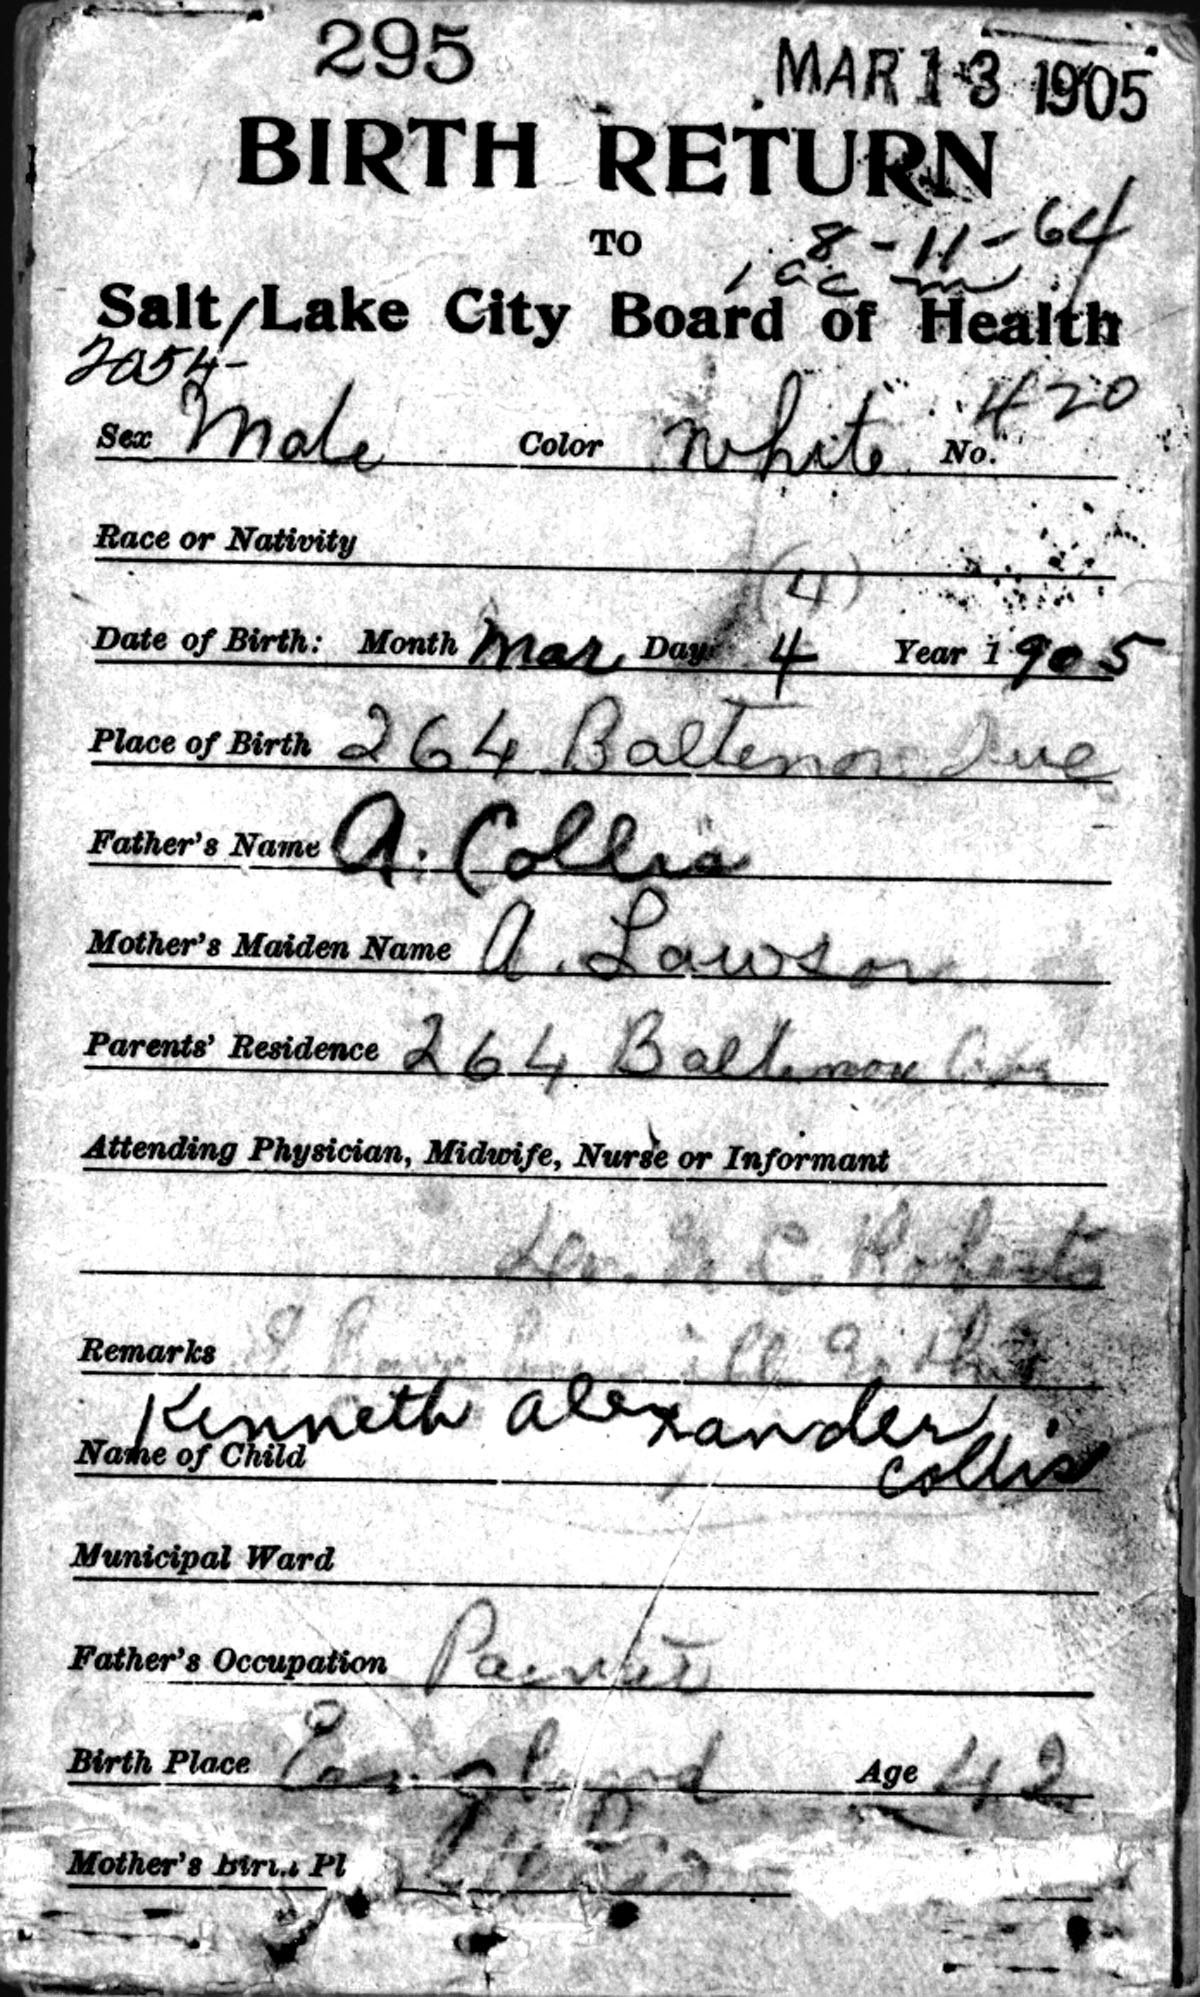 295
MAR 13 1905
BIRTH RETURN
TO
8-11-64
Salt Lake City Board of Health
2054-
420
Sex Male Color White No.
Race or Nativity
(4)
Date of Birth: Month Mar Day 4 Year 1905
Place of Birth 264 Baltimor Ave
Father's Name A. Collis
Mother's Maiden Name A. Lawson
Parents' Residence 264 Baltimore Ave
Attending Physician, Midwife, Nurse or Informant
C. Roberts
Remarks
Kenneth Alexander
Name of Child Collis
Municipal Ward
Father's Occupation Painter
Birth Place England Age 42
Mother's Birth Pl